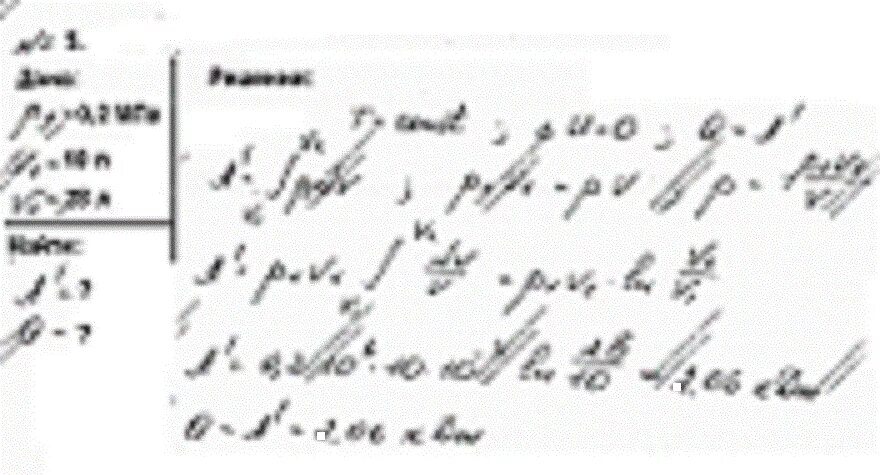 № 1.
Дано:
p₁=0,2 МПа
V₁=10 л
V₂=28 л
Найти:
A' - ?
Q - ?
Решение:
T = const ; ΔU=0 ; Q = A'
A' = ∫ p dV ; p₁V₁ = pV ; p = p₁V₁/V
A' = p₁V₁ ∫ dV/V = p₁V₁ · ln V₂/V₁
A' = 0,2·10⁶·10·10⁻³ ln 28/10 = 2,06 кДж
Q = A' = 2,06 кДж